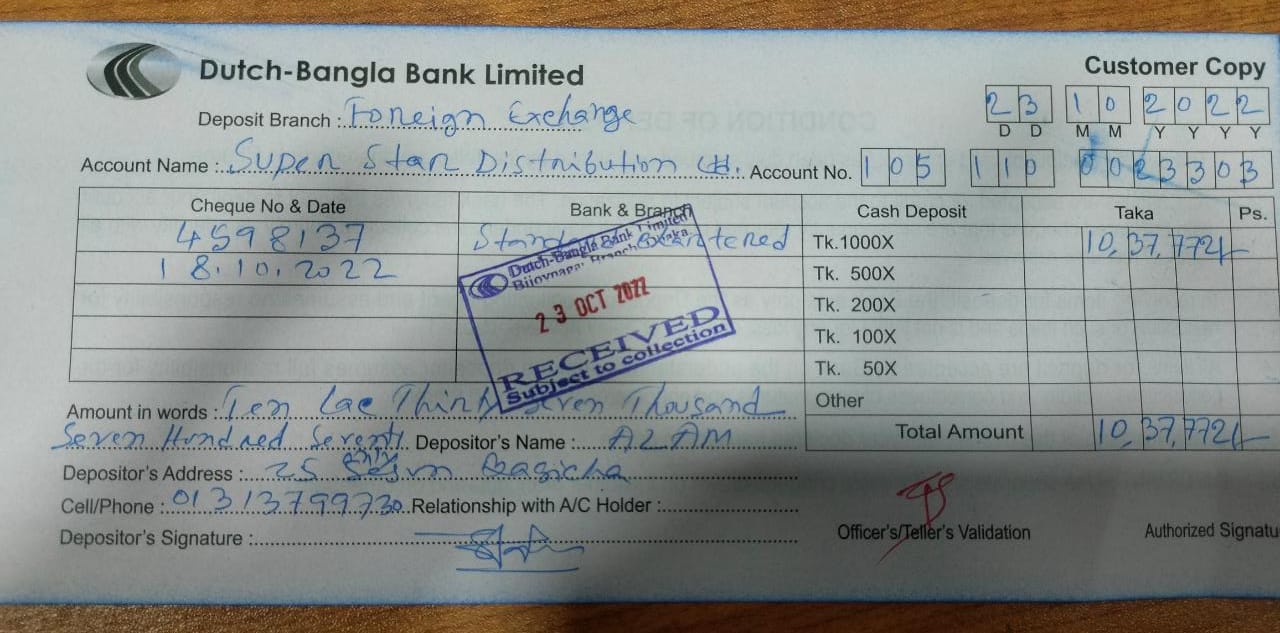 Dutch-Bangla Bank Limited
Customer Copy
Deposit Branch : Foreign Exchange
23 10 2022
D D M M Y Y Y Y
Account Name : Super Star Distribution Ltd. Account No. 105 110 0023303
Cheque No & Date Bank & Branch Cash Deposit Taka Ps.
4598137 Standard Chartered Tk.1000X 10,37,772/-
18.10.2022 Tk. 500X
Tk. 200X
Tk. 100X
Tk. 50X
Other
Dutch-Bangla Bank Limited
Bijoynagar Branch, Dhaka
23 OCT 2022
RECEIVED
Subject to collection
Amount in words : Ten Lac Thirty Seven Thousand
Total Amount 10,37,772/-
Seven Hundred Seventy Depositor's Name : AZAM
Depositor's Address : 25 Bagicha
Cell/Phone : 01313799730 Relationship with A/C Holder :
Depositor's Signature :
Officer's/Teller's Validation
Authorized Signatu